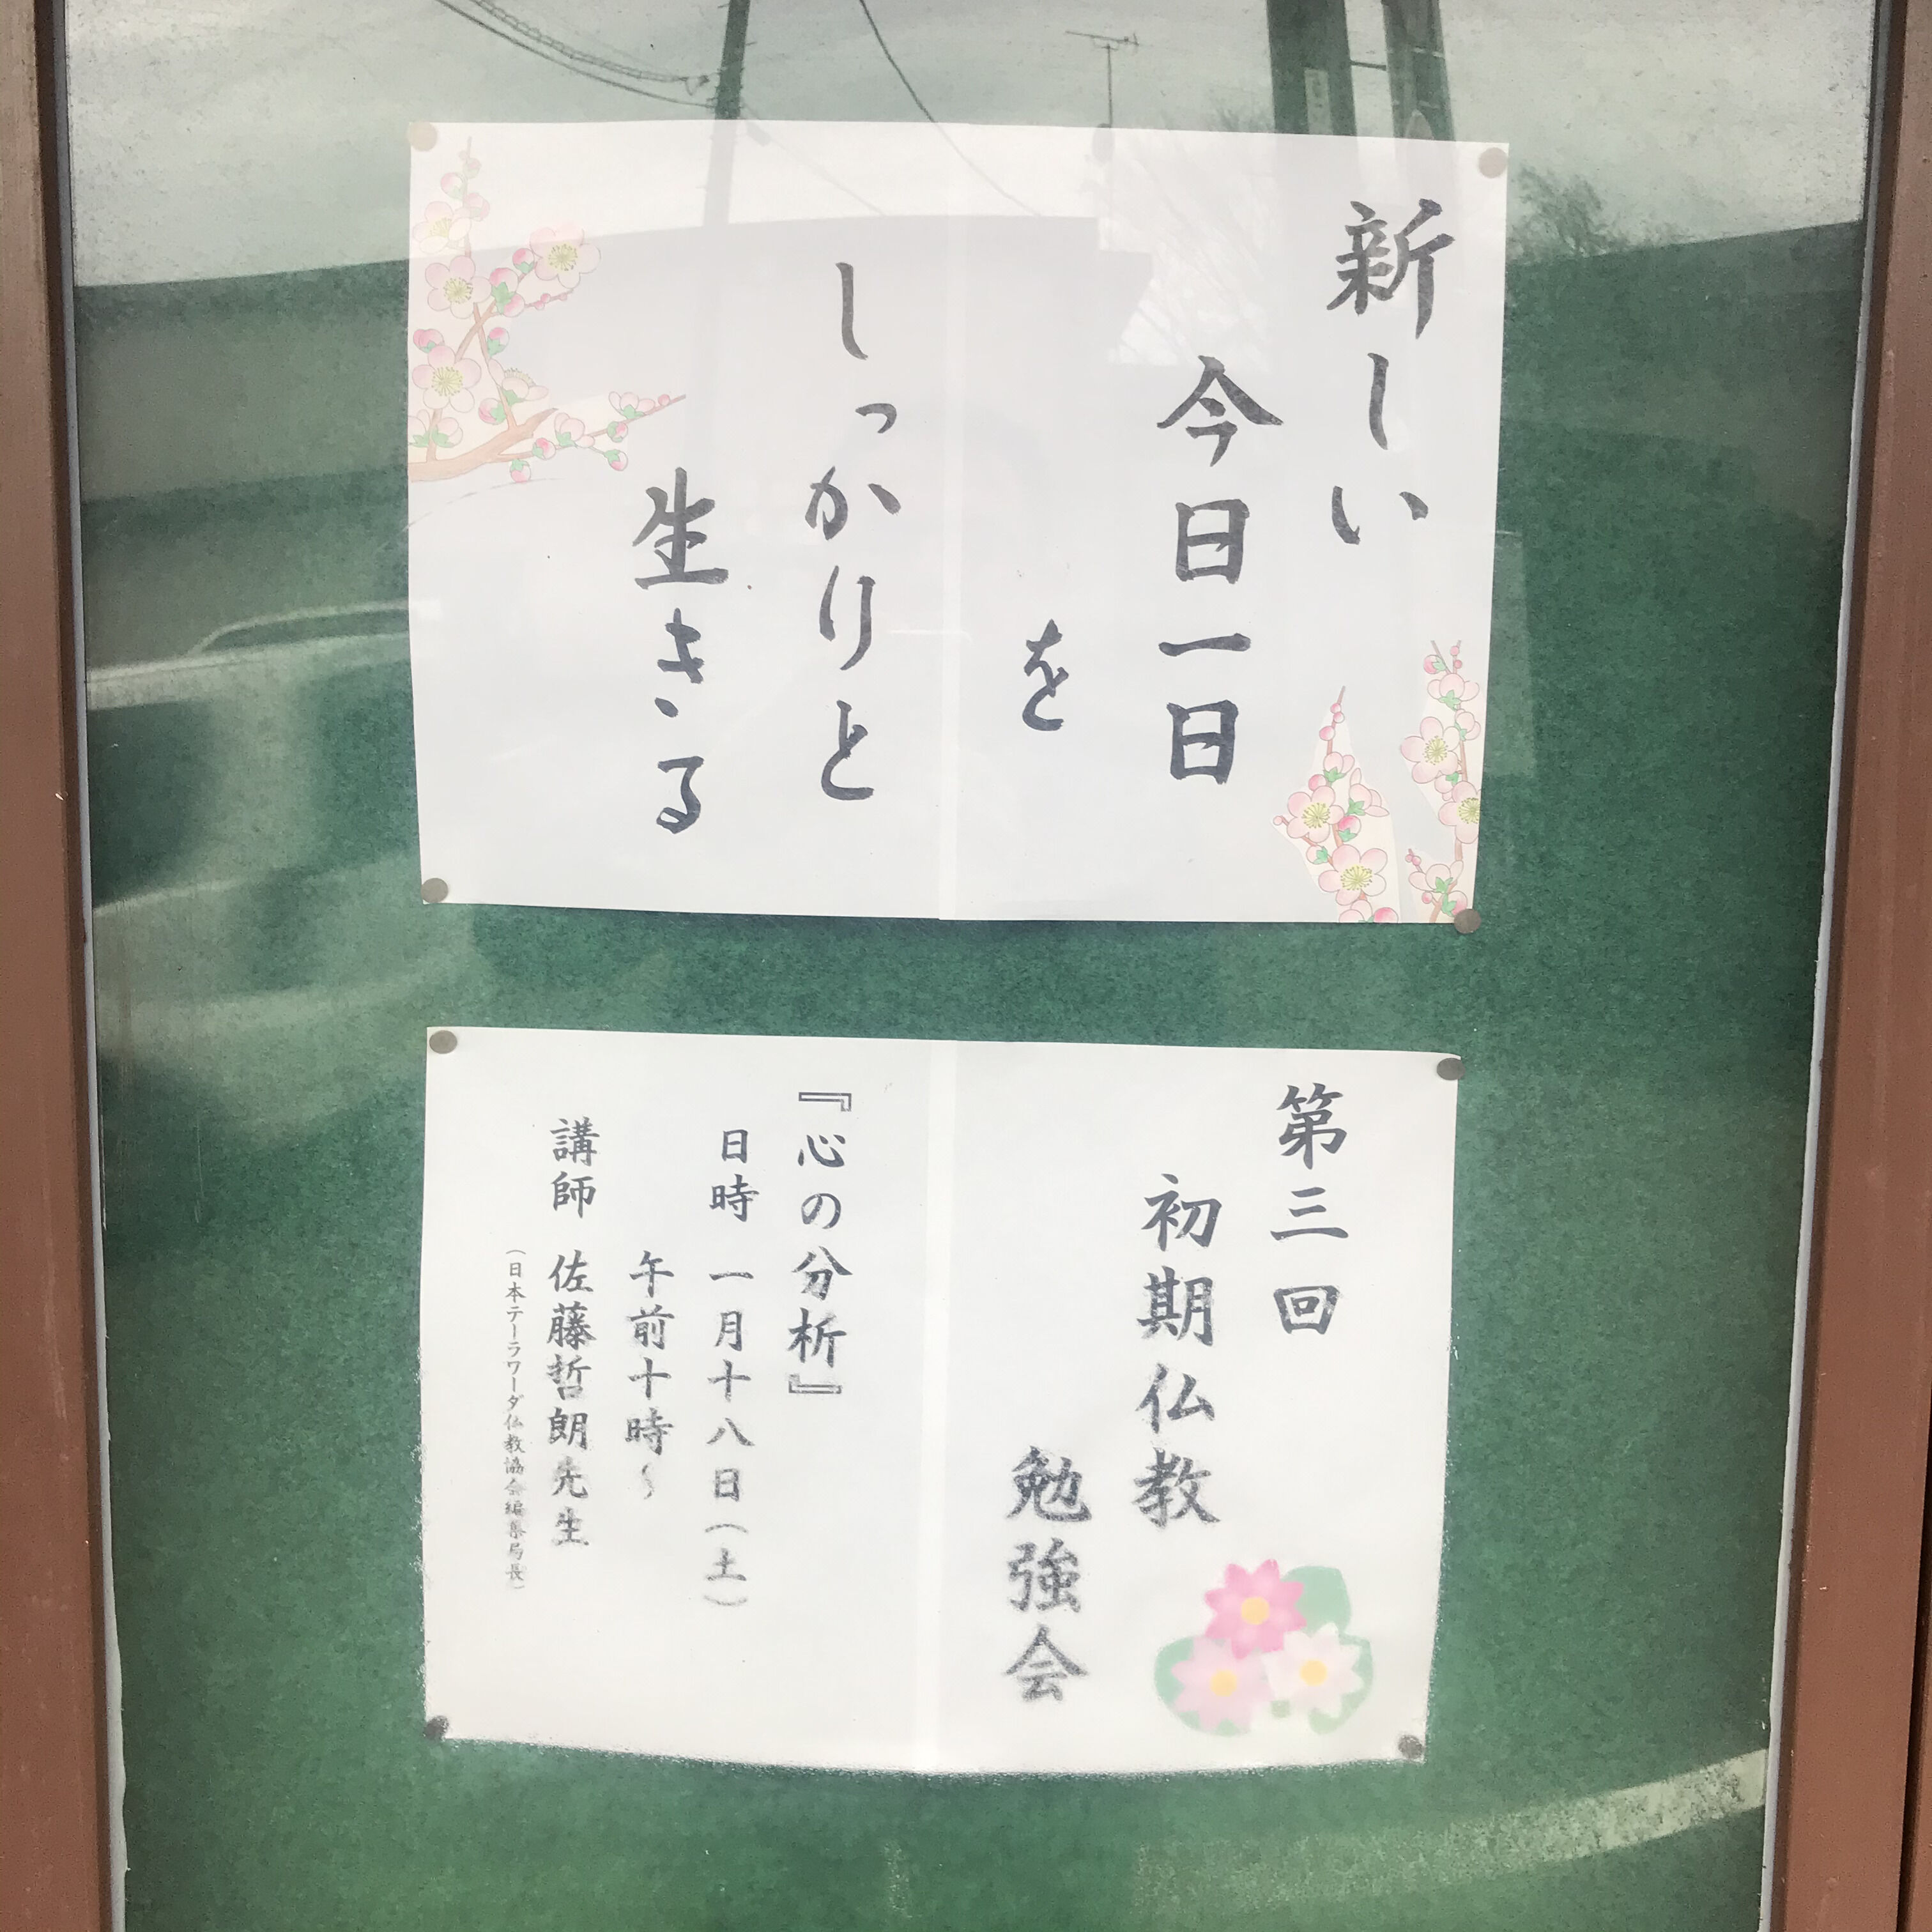 新しい
今日一日
を
しっかりと
生きる
第三回
初期仏教
勉強会
『心の分析』
日時 一月十八日(土)
午前十時～
講師 佐藤哲朗先生
(日本テーラワーダ仏教協会編集局長)